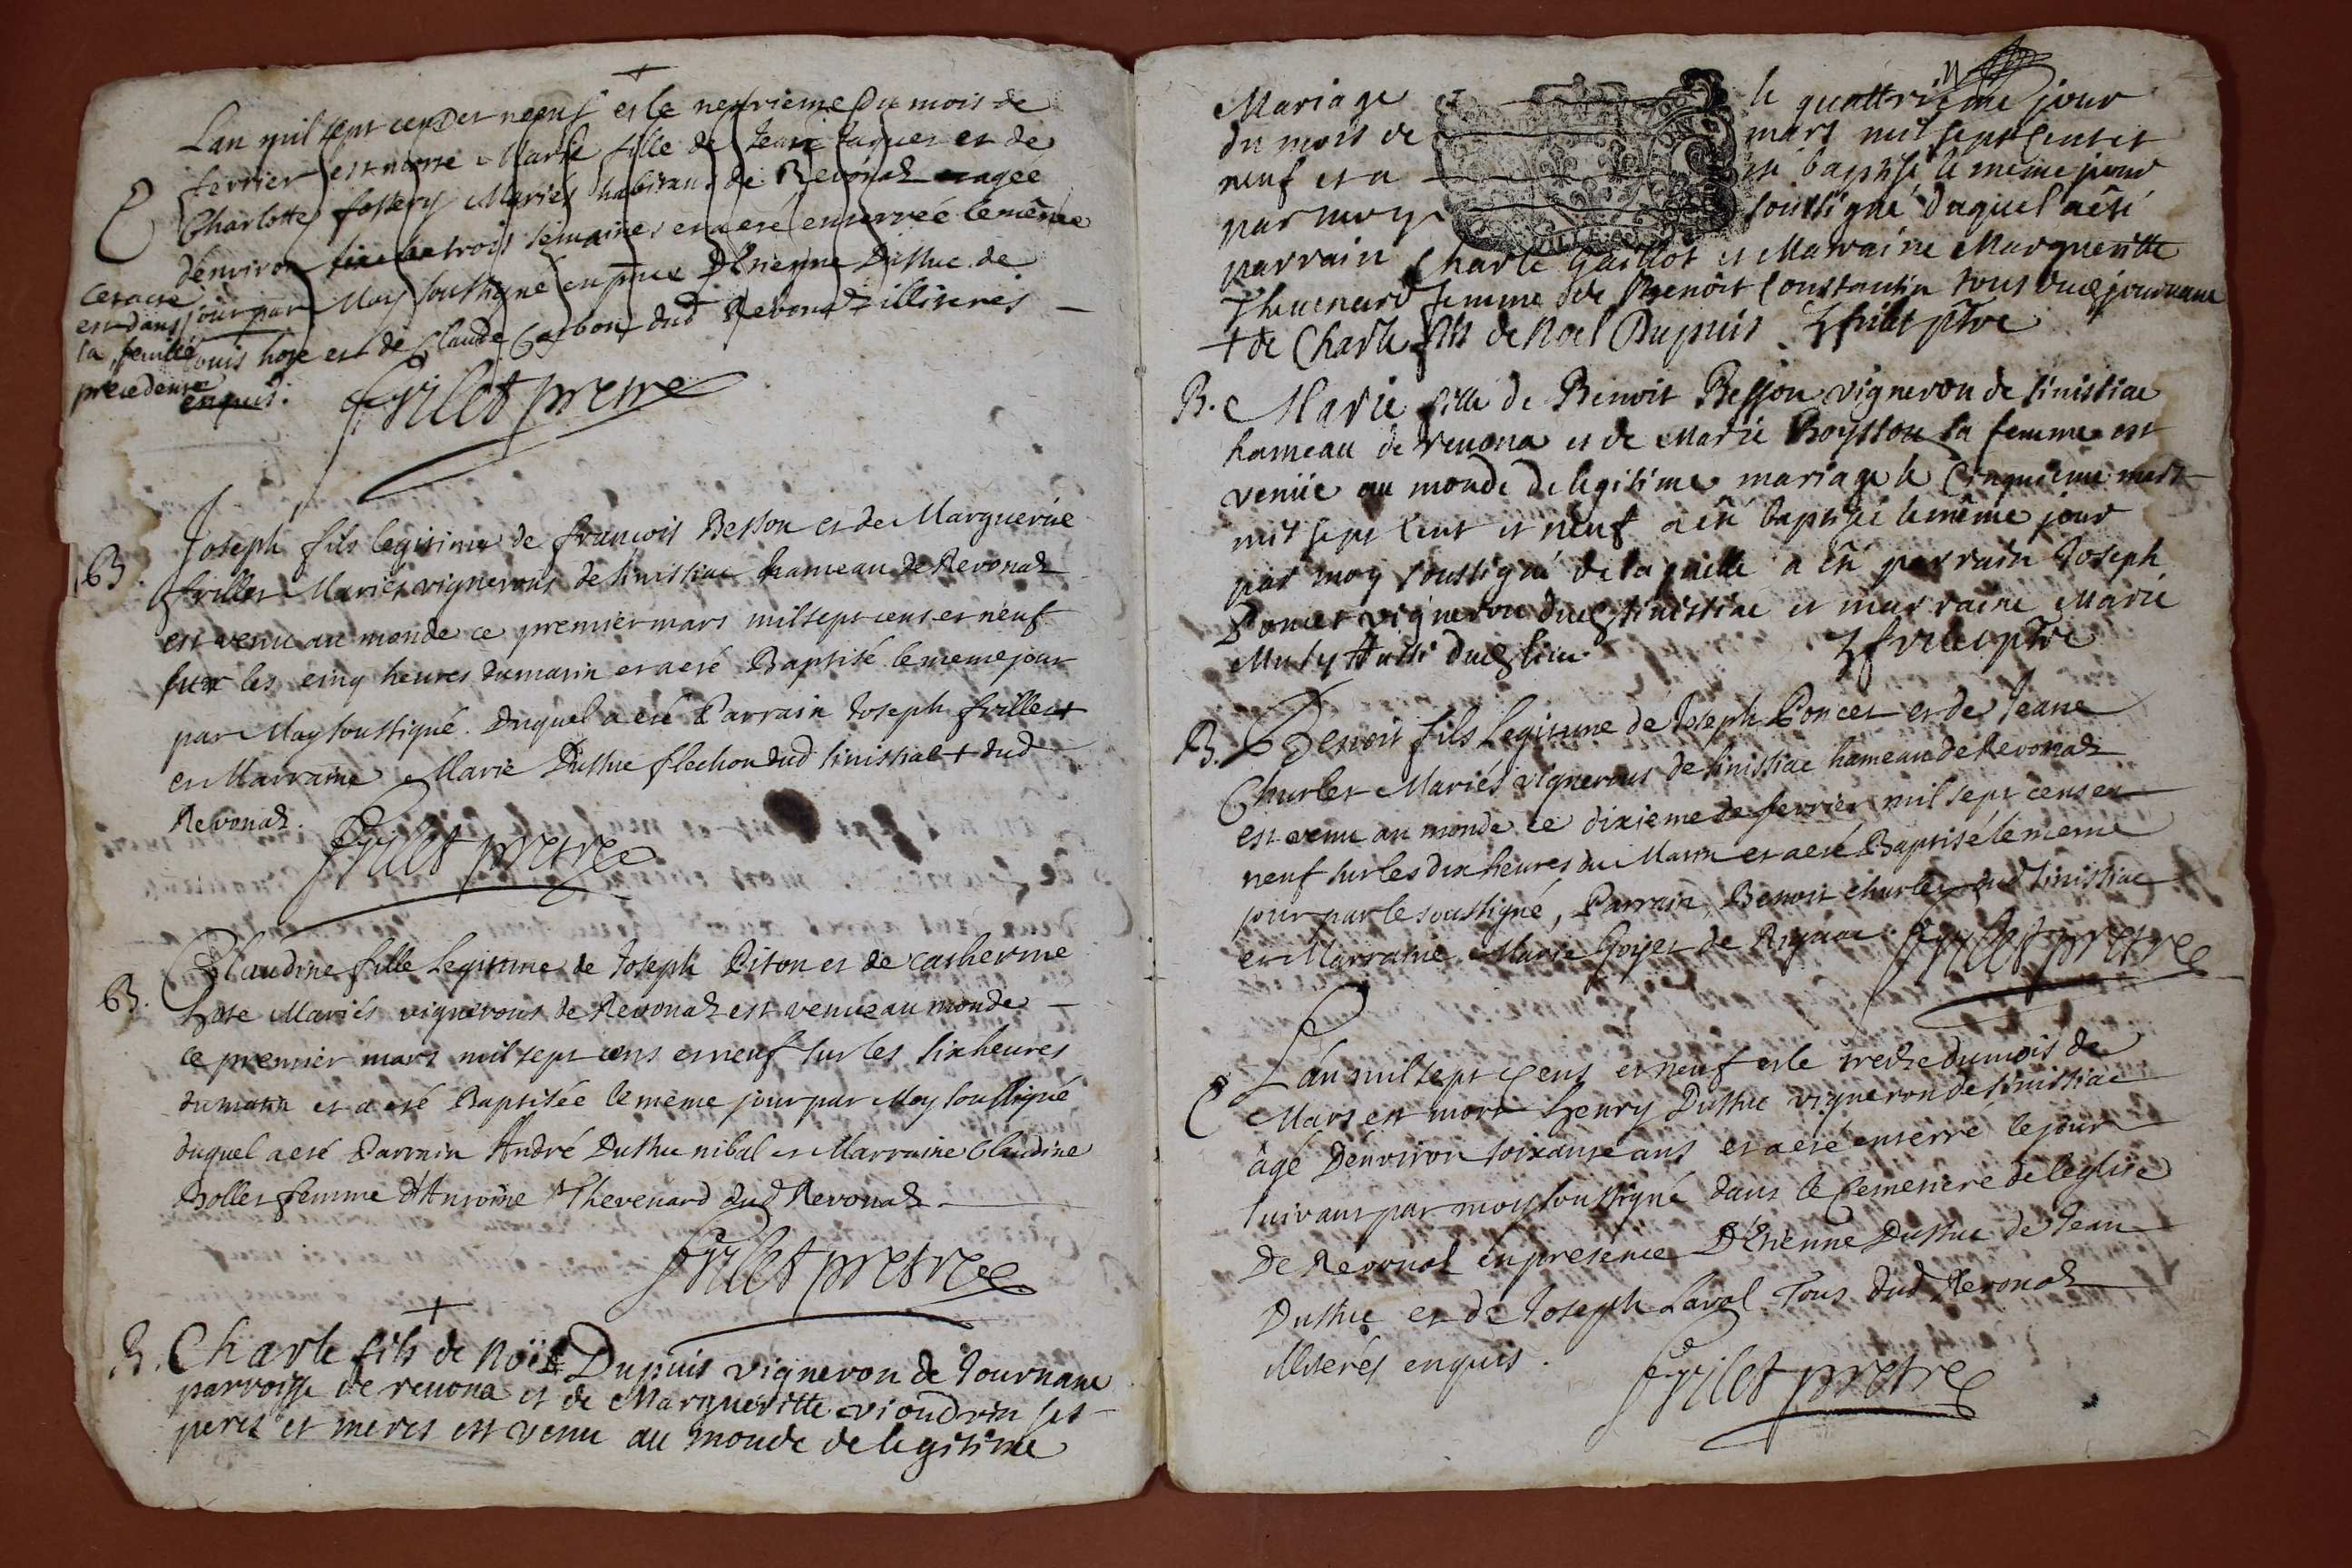 Lan mil sept cens et neuf et le neufvieme du mois de
fevrier est morte Marie fille de Jean Jaques et de
C
Charlotte fossery Mariés habitans de Revonas agée
denviron trois semaines et a eté enterrée le même
jour par Moy soussigné en pnce D'Etienne Duthuc de
Louis hoze et de Claude Carbon dud Revonas illiterés
enquis.
cet acte
est dans
la feuille
precedente
frilet pretre
B.
Joseph fils legitime de francois Besson et de Marguerite
frillet Mariés vignerons de sinissiac hameau de Revonas
est venu au monde ce premier mars mil sept cens et neuf
sur les cinq heures du matin et a eté Baptisé le meme jour
par Moy soussigné. Duquel a eté Parrain Joseph frillet
et Marraine Marie Duthuc flechon dud sinissiac + dud
Revonas.
frilet pretre
B.
Claudine fille Legitime de Joseph Piton et de catherine
hoze Mariés vignerons de Revonas est venue au monde
ce premier mars mil sept cens et neuf sur les six heures
du matin et a eté Baptisée le même jour par Moy soussigné
duquel a eté Parrain André Duthu nibal et Marraine Claudine
Bollet femme d'Antoine Thevenard dud Revonas
frilet pretre
+
B. Charle fils de Noël Dupuis vigneron de tournam
parroisse de revona et de Margueritte vioudrin ses
peres et meres est venu au monde de legitime
Mariage le quattrieme jour
du mois de mars mil sept cent et
neuf et a eté baptisé le meme jour
par moy soussigné duquel a été
parrain Charle Gaillot et Marraine Margueritte
Theuenard femme de Benoit Constantin tous dud journam
+ de Charle fils de Noel Dupuis. frilet ptre
B. Marie fille de Benoit Besson vigneron de sinissiac
hameau de revona et de Marie Boysson sa femme est
venüe au monde de legitime mariage le Cinquieme mars
mil sept Cent et neuf a été baptisée le même jour
par moy soussigné de laquelle a été parrain Joseph
Poncet vigneron dud sinissiac et marraine Marie
Aussi dud lieu
frilet ptre
B. Benoit fils Legitime de Joseph Poncet et de Jeane
Churlet Mariés vignerons de sinissiac hameau de Revonas
est venu au monde le dixieme de fevrier mil sept cens et
neuf sur les dix heures du Matin et a eté Baptisé le meme
jour par le soussigné, Parrain Benoit Churlet dud sinissiac
et Marraine Marie Goyet de Rignac.
frilet pretre
C
Lan mil sept cens et neuf et le treize du mois de
Mars est mort henry Duthuc vigneron de sinissiac
âgé D'environ soixante ans et a eté enterré le jour
suivant par moy soussigné dans le cemetiere de leglise
De Revonas en presence D'Etienne Duthuc de Jean
Duthuc et de Joseph Laval Tous dud Revonas
illiterés enquis.
frilet pretre